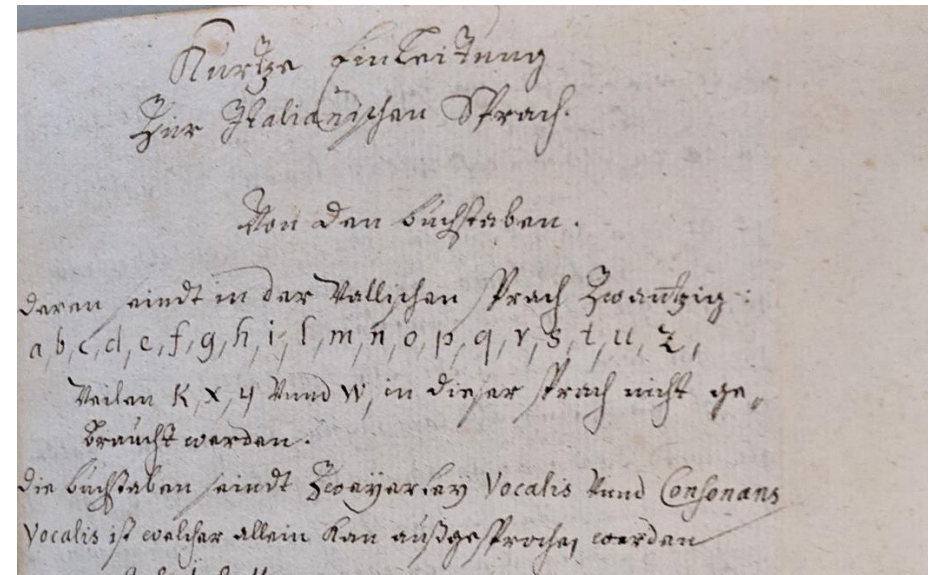 Kurtze Einleitung
Zur Italiänischen Sprach.
Von den buchstaben.
deren seindt in der Wallischen sprach Zwantzig:
a, b, c, d, e, f, g, h, i, l, m, n, o, p, q, r, s, t, u, z,
Weilen K, x, y Vnnd W, in dieser sprach nicht ge„
braucht werden.
die buchstaben seindt Zweyerley Vocalis Vnnd Consonans
Vocalis ist welcher allein kan außgesprochen werden